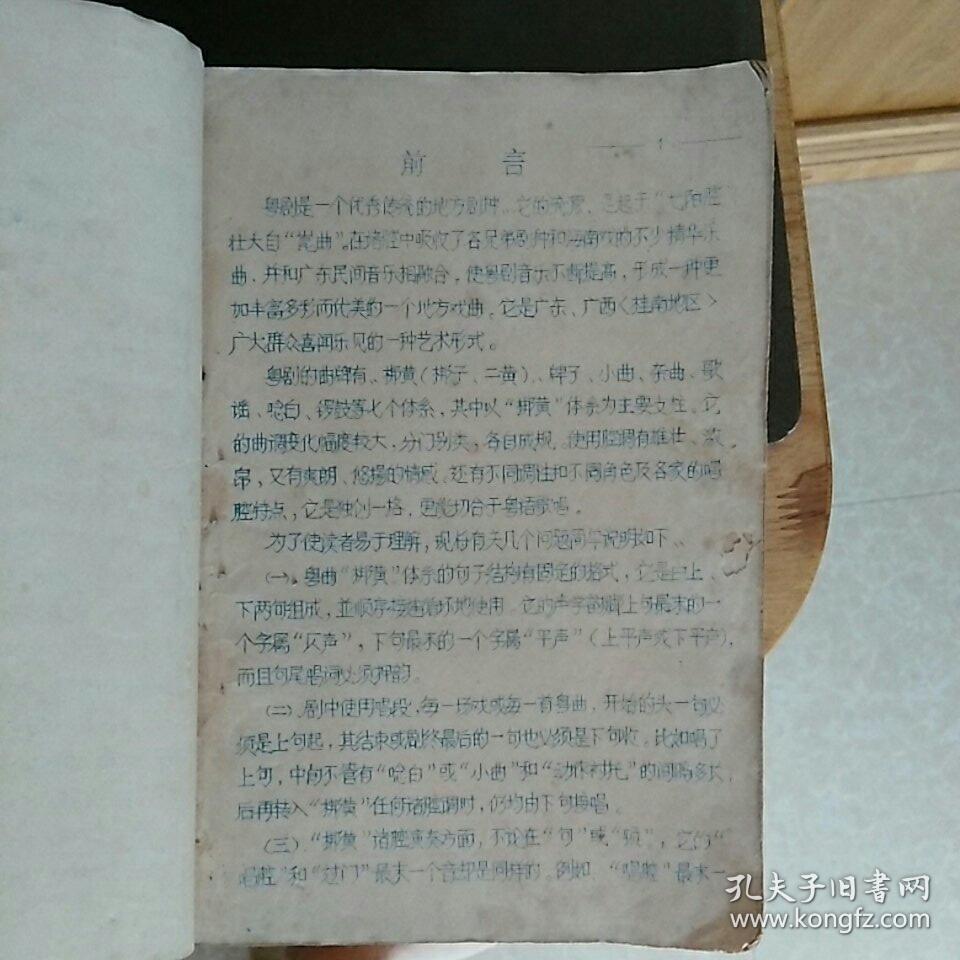 1
前 言
粤剧是一个优秀传统的地方剧种、它的流源、是起于“弋阳腔
壮大自“崑曲”。在培腔中吸收了各兄弟剧种和海南戏的不少精华乐
曲、并和广东民间音乐相融合，使粤剧音乐不断提高，形成一种更
加丰富多彩而优美的一个地方戏曲。它是广东、广西〈桂南地区〉
广大群众喜闻乐见的一种艺术形式。
粤剧的曲牌有、梆黄（梆子、二黄）、牌子、小曲、杂曲、歌
谣、唸白、锣鼓等七个体系，其中以“梆黄”体系为主要支柱。它
的曲调变化幅度较大，分门别类，各自成规。使用腔调有雄壮、激
昂，又有爽朗、悠揚的情感。还有不同调性和不同角色及各家的唱
腔特点，它是独创一格，更能切合于粤语歌唱。
为了使读者易于理解，现将有关几个问题简单说明如下、
（一）、粤曲“梆黄”体系的句子结构有固定的格式，它是由上、
下两句组成，並顺序接连循环地使用。它的声字韵脚上句最末的一
个字属“仄声”，下句最末的一个字属“平声”（上平声或下平声），
而且句尾唱词必须押韵。
（二）、剧中使用唱段，每一场戏或每一首粤曲，开始的头一句必
须是上句起，其结束或剧终最后的一句也必须是下句收。比如唱了
上句，中间不管有“唸白”或“小曲”和“动作衬托”的间隔多长，
后再转入“梆黄”在何诸腔调时，仍均由下句接唱。
（三）“梆黄”诸腔演奏方面，不论在“句”或“顿”，它的“
唱腔”和“过门”最末一个音却是同样的。例如，“唱腔”最末一
孔夫子旧书网
www.kongfz.com